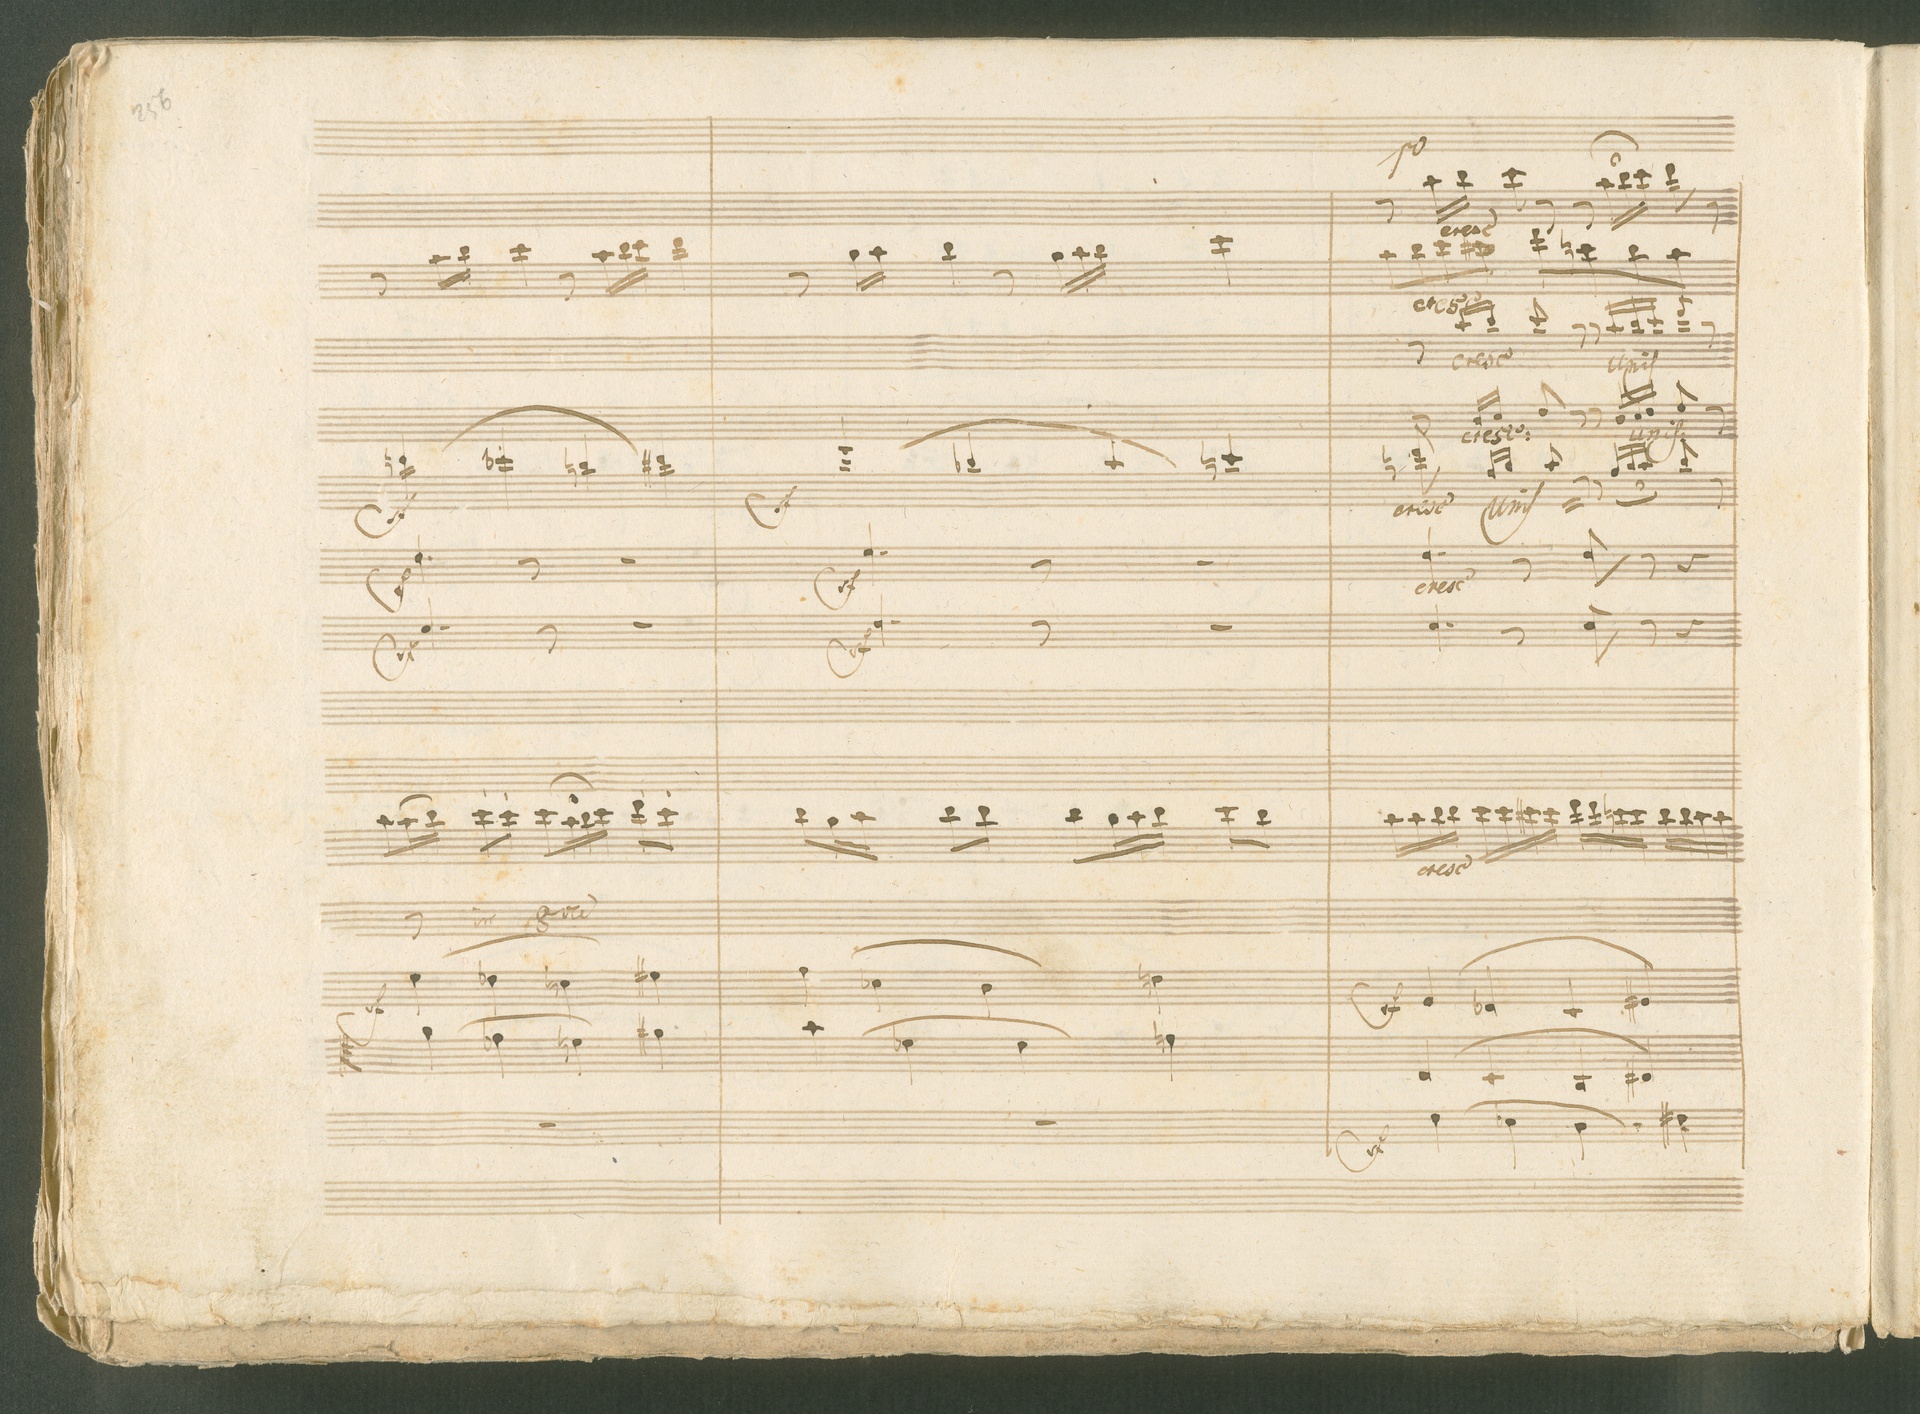 256
po
cresc
cresc
cresc unis
cresc: unis:
sf sf cresc unis
sf sf cresc
sf sf
cresc
in 8va
sf sf
sf